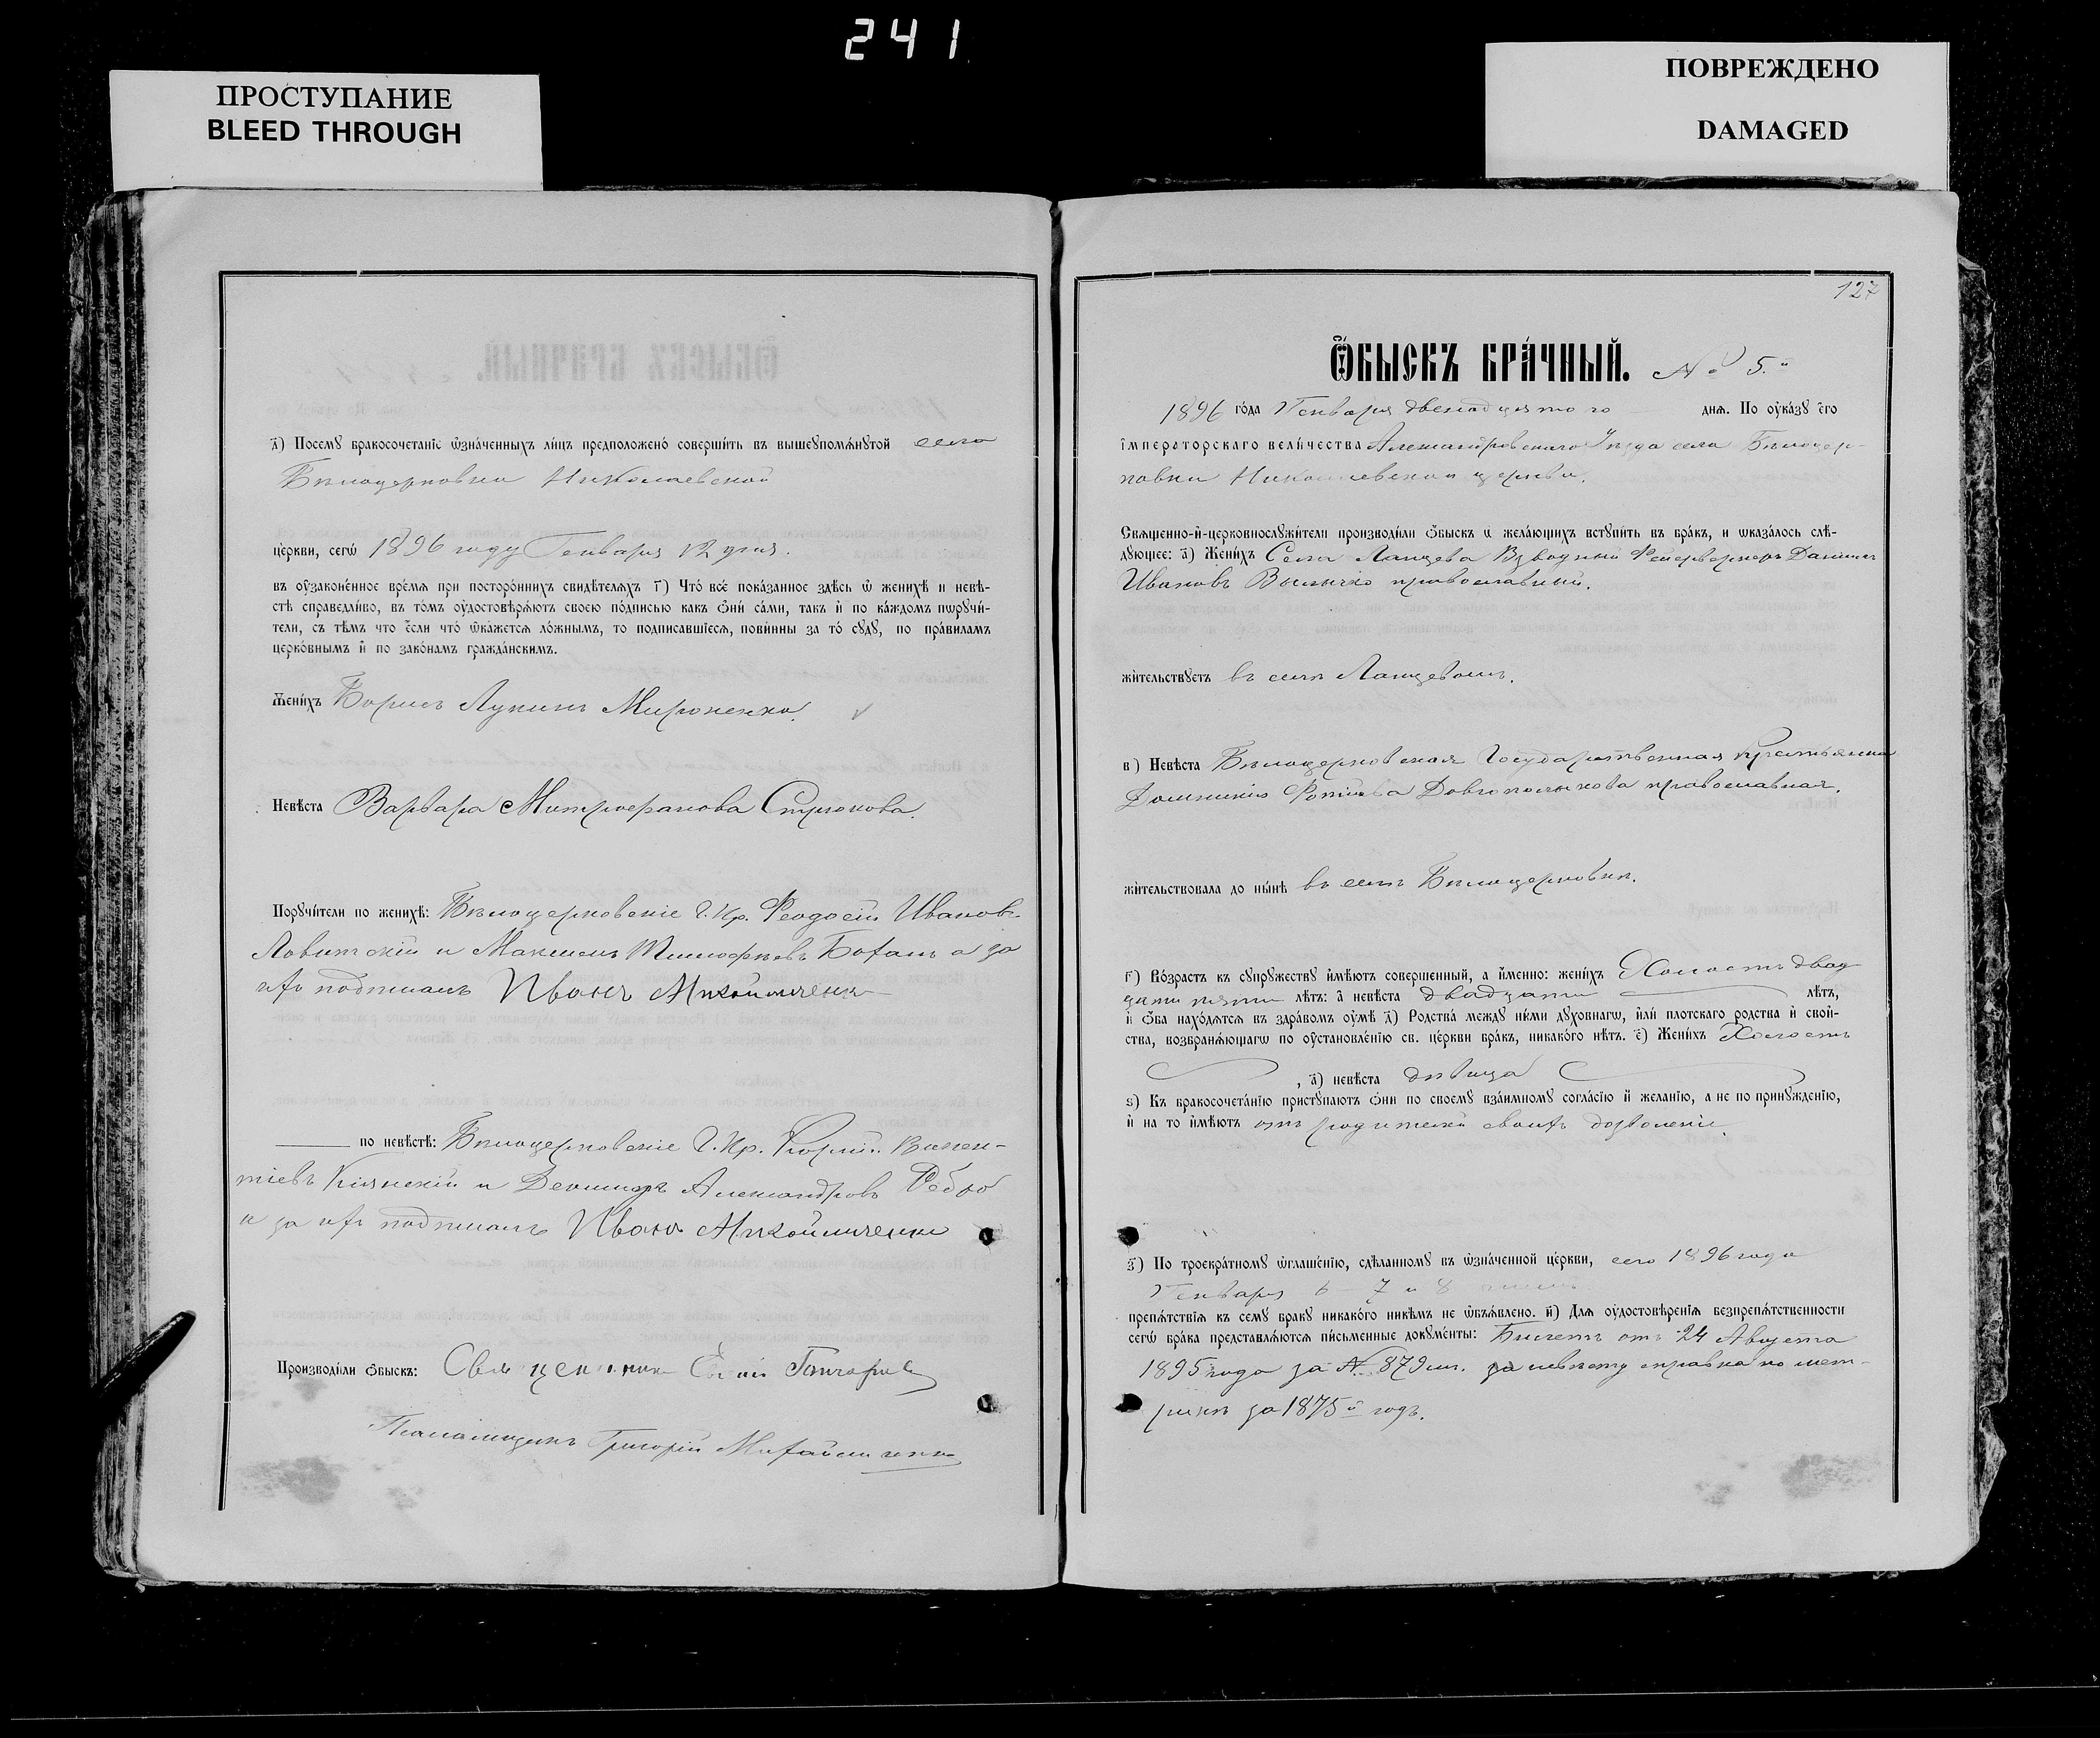 241
ПРОСТУПАНИЕ
BLEED THROUGH
ПОВРЕЖДЕНО
DAMAGED
д҃) Посемꙋ бракосочетанїе ѡзна́ченныхъ ли́цъ предположено̀ соверши́ть въ вышеꙋпомѧ́нꙋтой села
Бѣлоцерковки Николаевской
це́ркви, сегѡ̀ 1896 году Генваря 12 дня.
въ ᲂу҆зако́не́нное вре́мѧ при посторо́ннихъ свидѣ́телѧхъ г҃) Что́ все́ пока́занное здѣ́сь ѡ҆ женихѣ̀ и невѣ́-
стѣ справедли́во, въ то́мъ ᲂу҆достовѣрѧ́ютъ своею по́дписью какъ ѻ҆нѝ са́ми, такъ и҆ по ка́ждомъ пѡрꙋчи́-
тели, съ тѣ́мъ что е҆́сли что́ ѡ҆ка́жетсѧ ло́жнымъ, то подписавшїесѧ, пови́нны за то́ сꙋдꙋ̀, по пра́виламъ
церко́внымъ и҆ по зако́намъ гражда́нскимъ.
Жени́хъ Борисъ Лукинъ Мироненко.
Невѣ́ста Варвара Митрофанова Стрюкова.
Порꙋчи́тели по женихѣ̀: Бѣлоцерковскіе Г. Кр. Феодосій Ивановъ
и Максимъ Тимофѣевъ а за
ихъ подписалъ Иванъ
по невѣ́стѣ: Бѣлоцерковскіе Г. Кр.
Кіянскій и Александровъ
а за ихъ подписалъ Иванъ
Производи́ли ѻ҆́быскъ: Священникъ
Григорій Михайличенко
127
Ѻ҆́БЫСКЪ БРА́ЧНЫЙ. № 5.й
1896 го́да Генваря двенадцятого днѧ̀. По ᲂу҆ка́зꙋ є҆гѡ̀
і҆мператорскаго вели́чества Александровскаго Уѣзда села Бѣлоцер-
ковки Николаевской церкви.
Свѧщенно-и҆-церковнослꙋжи́тели производи́ли ѻ҆́быскъ ѡ҆ жела́ющихъ встꙋпи́ть въ бра́къ, и ѡказа́лось слѣ́-
дꙋющее: а҃) Жени́хъ Села Ланцева Взводный Фейерверкеръ Даніилъ
Ивановъ православный.
жи́тельствꙋетъ въ селѣ Ланцевомъ.
в҃) Невѣ́ста Бѣлоцерковская Государственная крестьянка
Домникія Фотіева Долгополыхова православная.
жи́тельствовала до ны́нѣ въ селѣ Бѣлоцерковкѣ.
г҃) Во́зрастъ къ сꙋпрꙋ́жествꙋ и҆мѣ́ютъ соверше́нный, а и҆́менно: жени́хъ Холостъ двад
цати пяти лѣ́тъ: а҆ невѣ́ста двадцати лѣ́тъ,
и҆ ѻ҆́ба нахо́дѧтсѧ въ здра́вомъ ᲂу҆мѣ̀ д҃) Родства̀ междꙋ ни́ми дꙋхо́внагѡ, и҆лѝ плотскаго родства и҆ свой-
ства̀, возбранѧ́ющагѡ по ᲂу҆становле́нїю св. це́ркви бра́къ, никако́го нѣ́тъ. є҃) Жени́хъ Холостъ
, а҆) невѣ́ста дѣвица
ѕ҃) Къ бракосочета́нїю пристꙋпаютъ ѻ҆нѝ по своемꙋ вза́имномꙋ согла́сїю и҆ жела́нїю, а не по принꙋжде́нїю,
и҆ на то и҆мѣ́ютъ отъ родителей своихъ дозволеніе.
з҃) По троекра́тномꙋ ѡ҆глаше́нїю, сдѣ́ланномꙋ въ ѡзна́ченной це́ркви, сего 1896 года
Генваря 6 7 и 8
препѧ́тствїѧ къ семꙋ бракꙋ никако́го никѣ́мъ не ѡ҆б̾ѧ́влено. и҃) Длѧ ᲂу҆достовѣ́ренїѧ безпрепѧ́тственности
сегѡ̀ бра́ка представлѧ́ютсѧ пи́сьменные докꙋме́нты: Билетъ отъ 24 Августа
1895 года за № 879 за невѣсту справка по мет-
рикѣ за 1875й годъ.